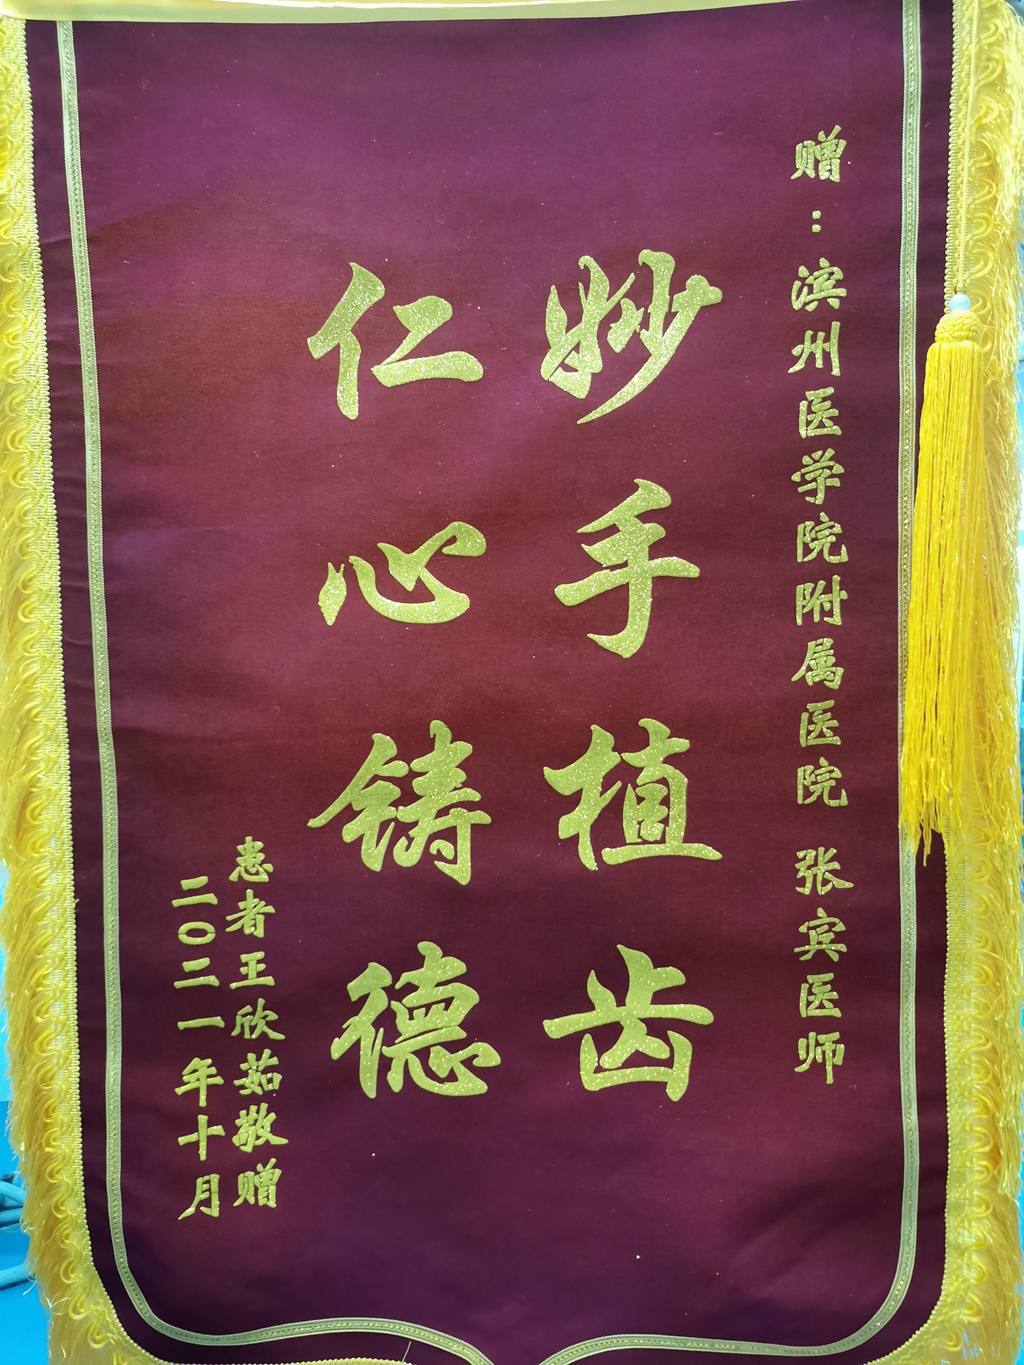 赠：滨州医学院附属医院 张宾医师
妙手植齿
仁心铸德
患者王欣茹敬赠
二〇二一年十月